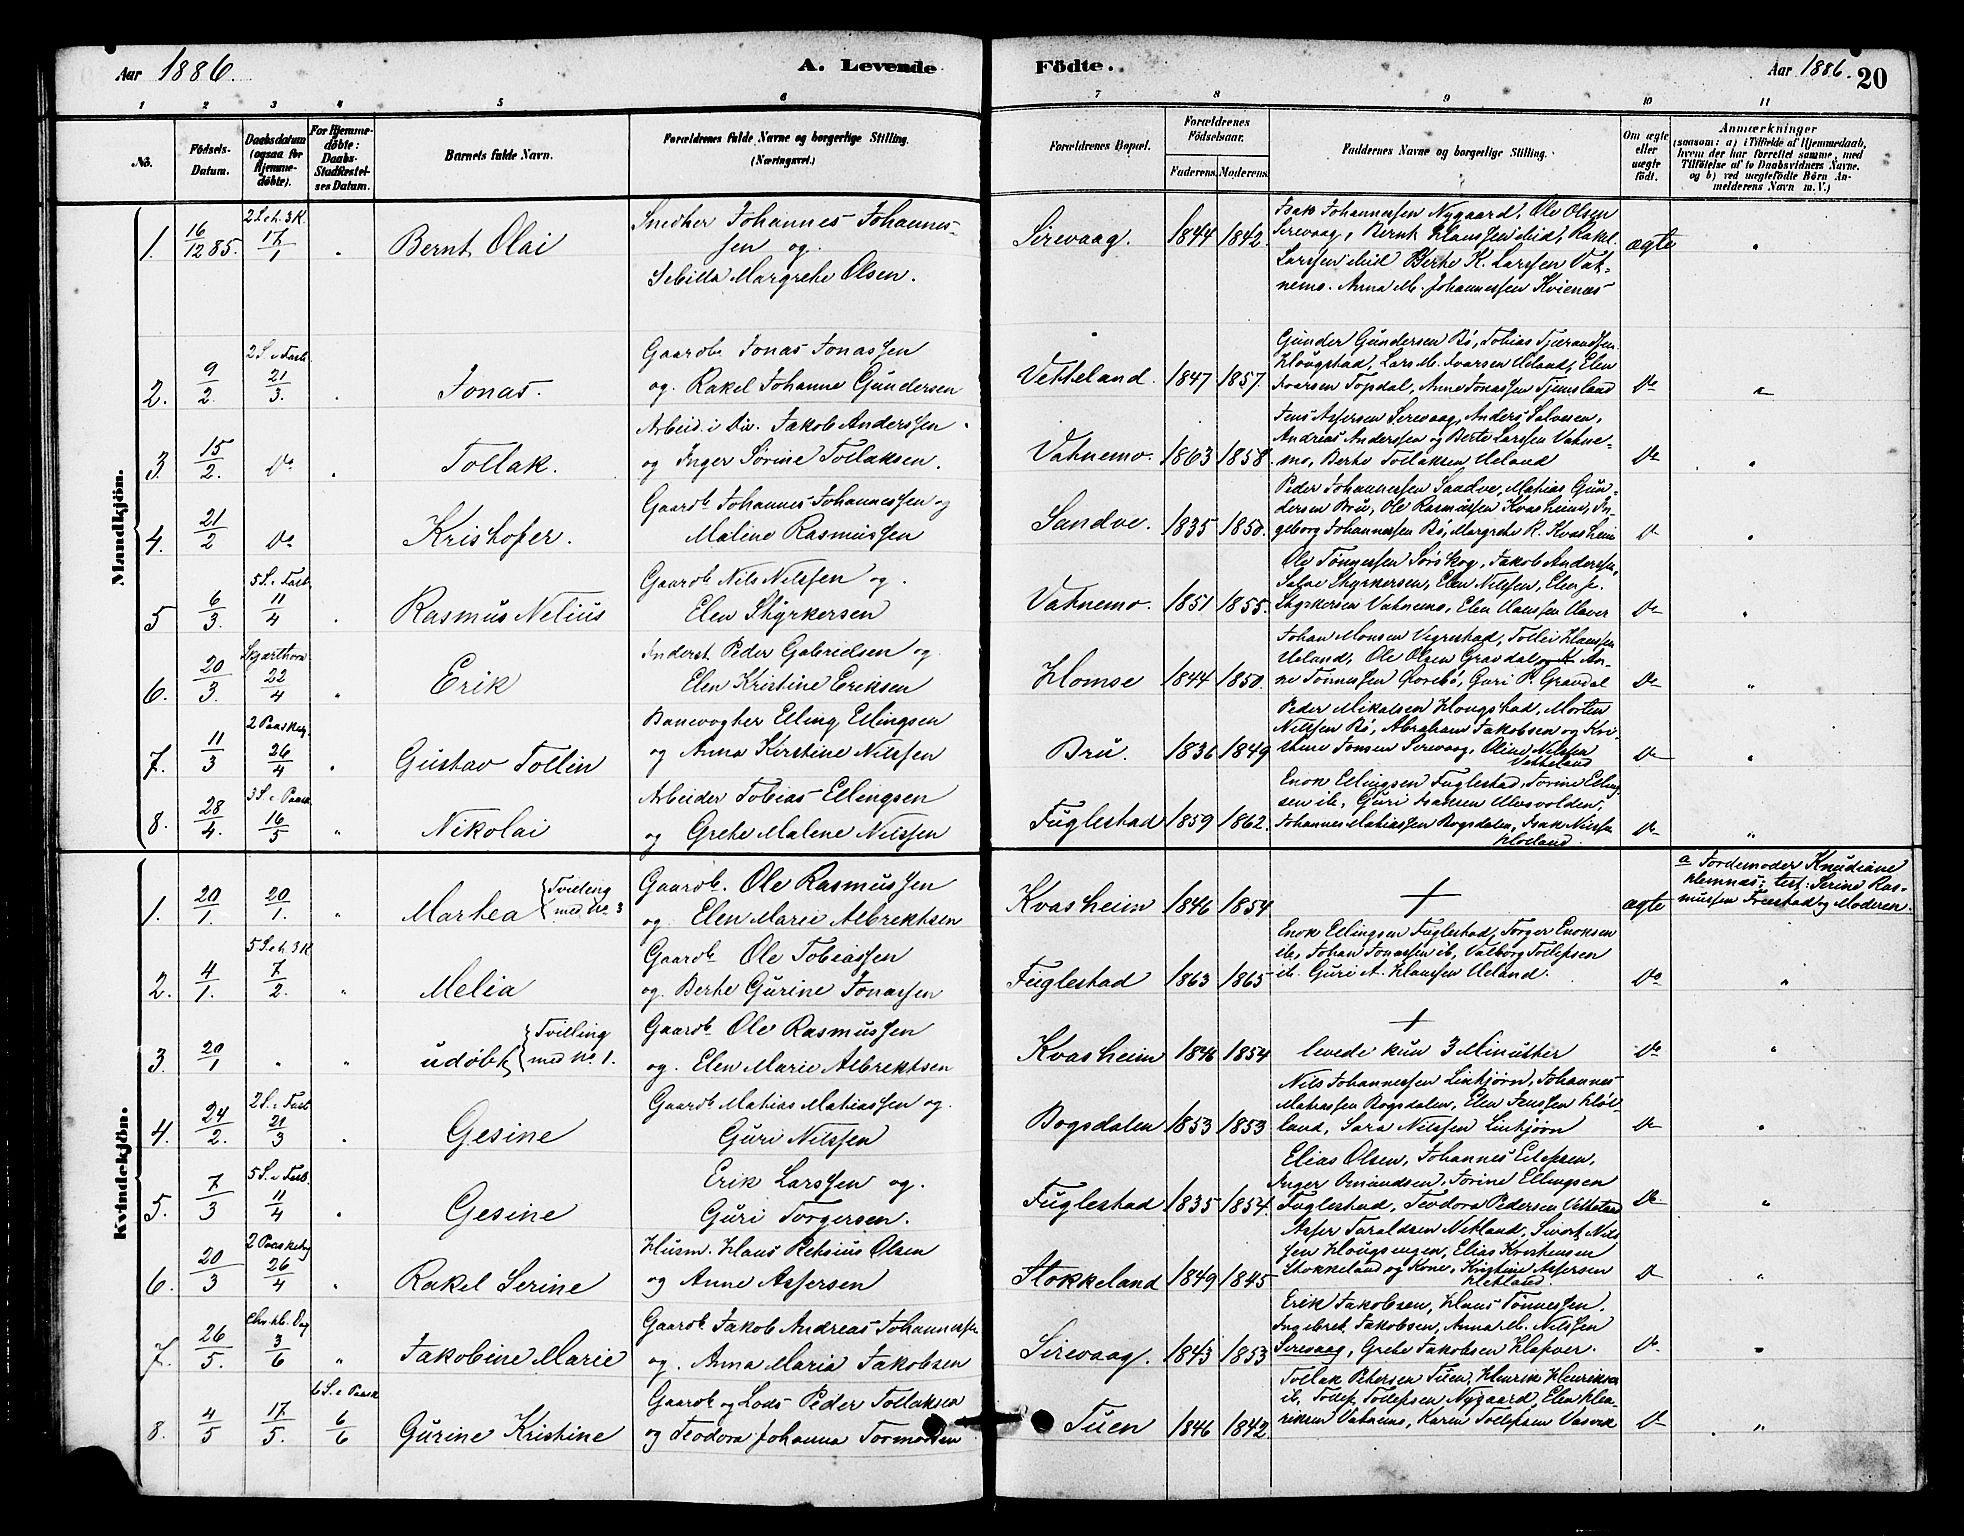 Aar 1886.
A. Levende
Födte.
Aar 1886.
20
1 2 3 4 5 6 7 8 9 10 11
No.
Födsels-
Datum.
Daabsdatum
(ogsaa for
Hjemme-
döbte).
For Hjemme-
döbte:
Daabs-
Stadfæstel-
ses Datum.
Barnets fulde Navn.
Forældrenes fulde Navne og borgerlige Stilling.
(Næringsvei.)
Forældrenes Bopæl.
Forældrenes
Födselsaar.
Faderens. Moderens.
Faddernes Navne og borgerlige Stilling.
Om ægte
eller
uægte
födt.
Anmærkninger
(saasom: a) i Tilfælde af Hjemmedaab,
hvem der har forrettet samme, med
Tilföielse af to Daabsvidners Navne.
og b) ved uægtefödte Börn An-
melderens Navn m. V.)
Mandkjön.
1. 16/12 85. 2 S. e. h. 3 K. 17/1 " Bernt Olai
Snedker Johannes Johannes-
sen og
Sebilla Margrethe Olsen.
Sirevaag. 1844 1842.
Isak Johannessen Nygaard, Ole Olsen
Sirevaag, Bernt Klaussen ibid, Rakel
Larssen ibid Berte K. Larssen Vat-
nemo. Anna M. Johannessen Kvienæs
ægte "
2. 9/2. 2 S. i Fast. 21/3. " Jonas.
Gaardb. Jonas Jonassen
og Rakel Johanne Gundersen
Vetteland. 1847 1857.
Gunder Gundersen Bö, Tobias Tjerandsen
Hougstad, Lars M. Ivarsen Ueland, Elen
Ivarsen Topdal, Anne Jonassen Tjemsland
Do "
3. 15/2. Do " Tollak.
Arbeid. i Div. Jakob Anderssen
og Inger Sörine Tollaksen.
Vatnemo. 1863 1858.
Jens Aspersen Sirevaag, Anders Salvesen,
Andreas Anderssen og Berte Larssen Vatne-
mo, Berte Tollaksen Ueland
Do "
4. 21/2 Do Kristofer.
Gaardb. Johannes Johannessen og
Malene Rasmussen
Sandve. 1835 1850.
Peder Johannessen Sandve, Matias Gun-
dersen Bru, Ole Rasmussen Kvasheim, In-
geborg Johannessen Bö, Margrete R. Kvasheim
Do "
5 6/3. 5 S. i Fast. 11/4 " Rasmus Nelius
Gaardb. Nils Nilssen og
Elen Styrkersen
Vatnemo. 1851 1855.
Ole Tönnessen Sörskog, Jakob Anderssen,
Salve Styrkersen, Elen Nilssen, Elen J.
Styrkersen Vatnemo, Elen Clausen Haver
Do "
6. 20/3. Skjærthorsd. 22/4 " Erik
Inderst Peder Gabrielsen og
Elen Kristine Eriksen
Homse 1844 1850.
Johan Monsen Vigrestad, Tollei Klaussen
Ueland, Ole Olsen Gravdal, An-
ne Tönnessen Odrebö, Guri P. Gravdal
Do "
7. 11/3 2 Paaskeg. 26/4 " Gustav Tollin
Banevogter Elling Ellingsen
og Anna Kirstine Nilssen
Bru. 1836 1849
Peder Mikalsen Hougstad, Morten
Nilssen Bö, Abraham Jakobsen og Kri-
stine Jonsen Sirevaag, Oline Nilssen
Vetteland
Do "
8. 28/4. 3 S. e. Paask. 16/5 " Nikolai
Arbeider Tobias Ellingsen
og Grete Malene Nilssen
Fuglestad 1859 1862.
Enok Ellingsen Fuglestad, Torine Elling-
sen ib, Guri Isaksen Ulvsvolden,
Johannes Matiassen Bogsdalen, Isak Nilssen
Hölland.
Do "
Kvindekjön.
1. 20/1. 20/1. " Martea { Tvilling
med No. 3
Gaardb. Ole Rasmussen
og Elen Marie Albrektsen
Kvasheim 1846 1854
+
ægte
a Jordemoder Knudiane
Hemnæs; test: Serine Ras-
mussen Friestad og Moderen.
2. 4/1. 5 S. e. h. 3 K. 7/2. " Melia
Gaardb. Ole Tobiassen
og Berte Gurine Jonassen
Fuglestad 1863 1865
Enok Ellingsen Fuglestad, Torger Enoksen
ib, Johan Jonassen ib, Valborg Tollefsen
ib. Guri A. Klaussen Ueland.
Do "
3 20/1 " " udöbt { Tvilling
med No. 1.
Gaardb. Ole Rasmussen
og Elen Marie Albrektsen
Kvasheim 1846 1854
+
levede kun 3 Minutter
Do "
4. 24/2. 2 S. i Fast. 21/3 " Gesine
Gaardb. Matias Matiassen og
Guri Nilssen
Bogsdalen 1853 1853
Nils Johannessen Linhjörn, Johannes
Matiassen Bogsdalen, Elen Jenssen Höl-
land, Sara Nilssen Linhjörn
Do "
5. 7/3 5 S. i Fast. 11/4 " Gesine
Erik Larssen og
Guri Torgersen.
Fuglestad 1835 1854.
Elias Olsen, Johannes Edlefsen,
Inger Omundsen, Torine Ellingsen
Fuglestad, Teodora Pedersen Vetteland
Do "
6. 20/3 2 Paaskeg. 26/4 " Rakel Serine
Husm. Klaus Retsius Olsen
og Anne Aspersen
Stokkeland 1849 1845
Asper Taraldsen Netland, Sivert Nils-
sen Hougsengen, Elias Kristensen
Stokkeland og Kone, Kristine Aspersen
Hetland.
Do "
7. 26/5. Chr. hl. Dag 3/6 " Jakobine Marie
Gaardb. Jakob Andreas Johannessen
og Anna Maria Jakobsen
Sirevaag. 1843 1853
Erik Jakobsen, Klaus Tönnessen,
Ingebret Jakobsen, Anna M. Nilssen
Sirevaag, Grete Jakobsen Hafver.
Do "
8. 4/5 17/5. 6 S. e. Paask. 6/6 Gurine Kristine
Gaardb. og Lods Peder Tollaksen
og Teodora Johanna Tormodsen
Tuen 1846 1842.
Tollak Petersen Tuen, Henrik Henriksen
ib, Tollef Tollefsen Nygaard, Elen Hen-
riksen Vatnemo, Karen Tollefsen Vasvik
Do "